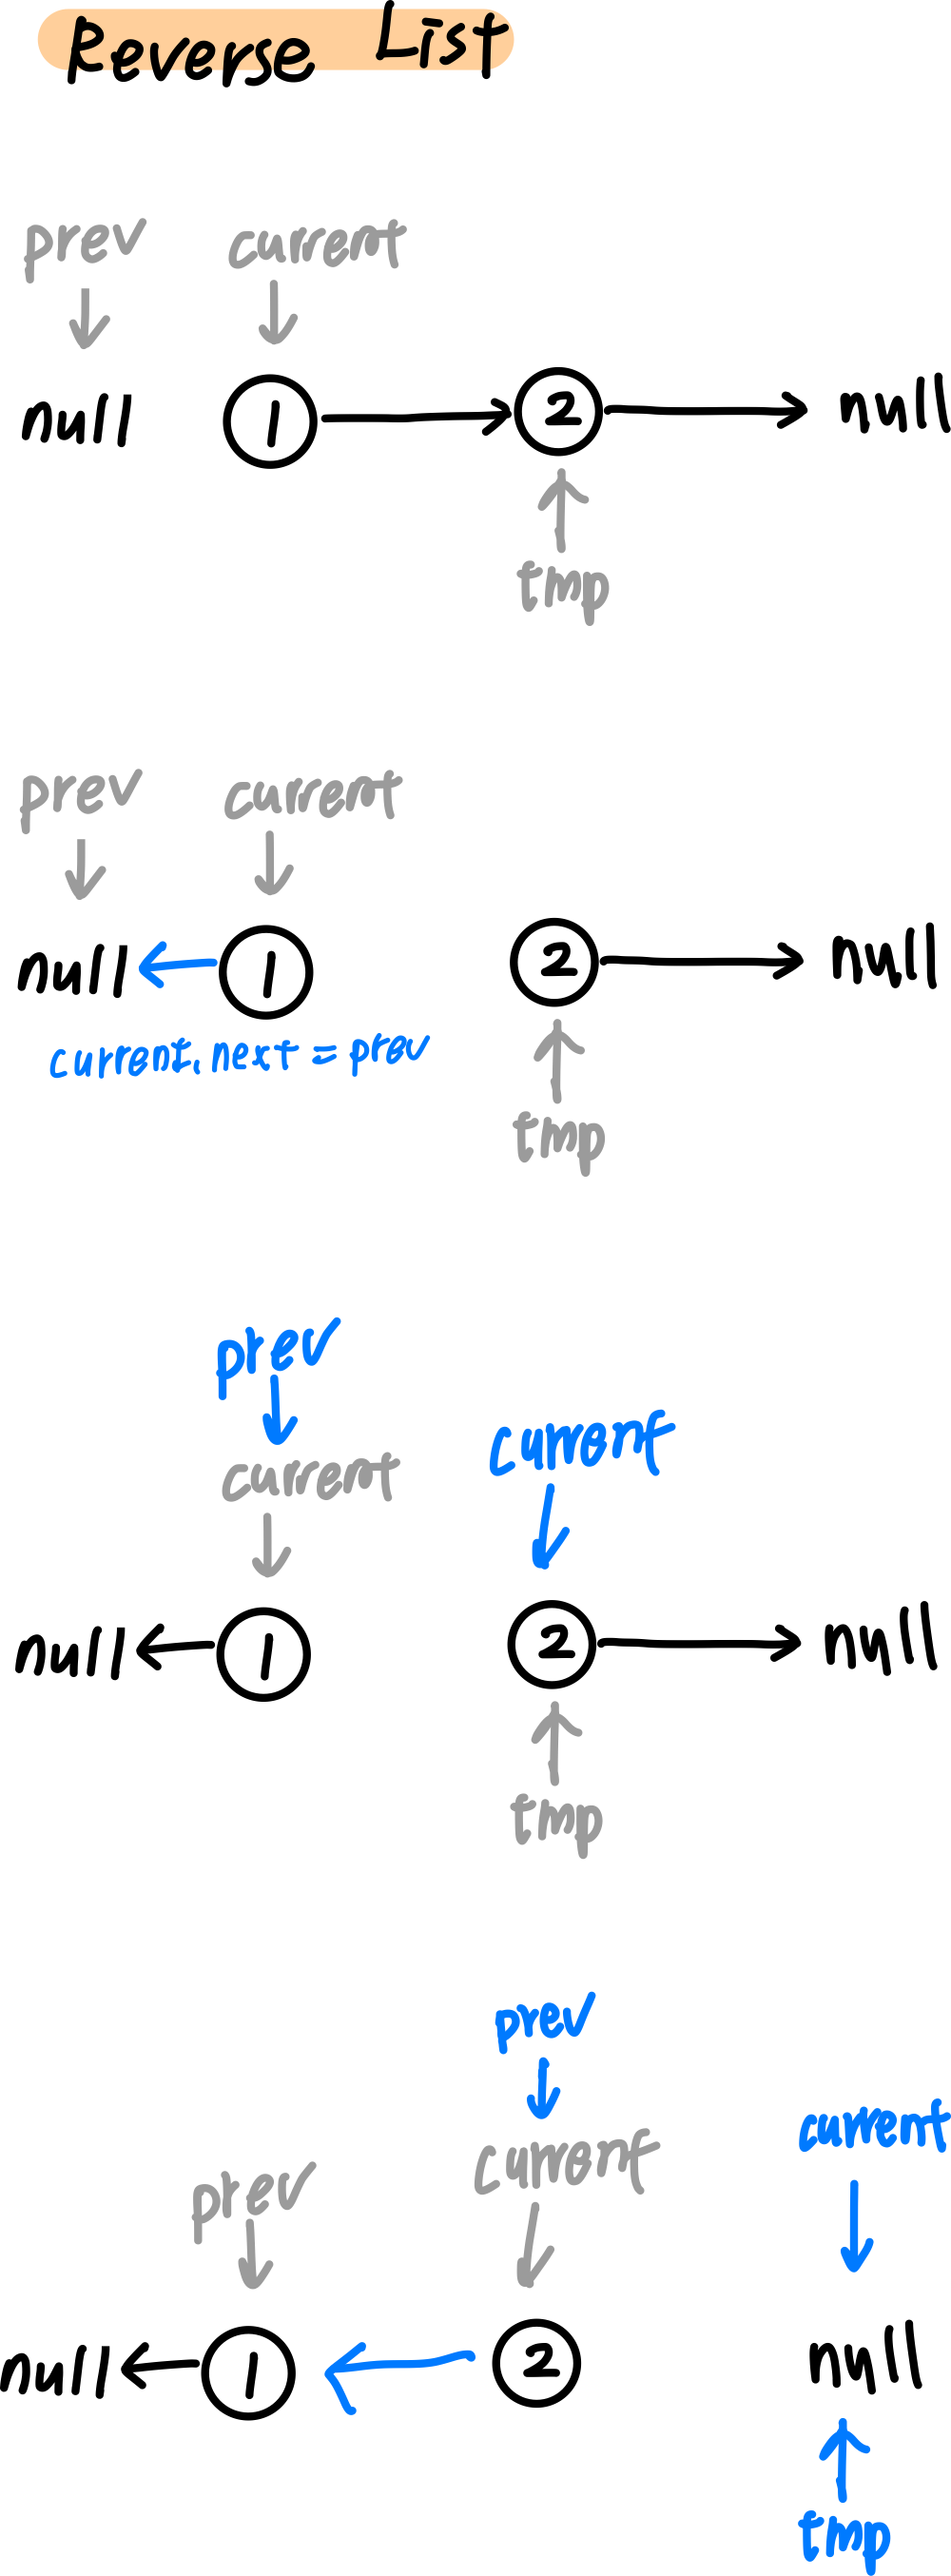 Reverse List
prev current
null 1 2 null
tmp
prev current
null 1 2 null
current.next = prev
tmp
prev
current
current
null 1 2 null
tmp
prev
current
current
prev
null 1 2 null
tmp